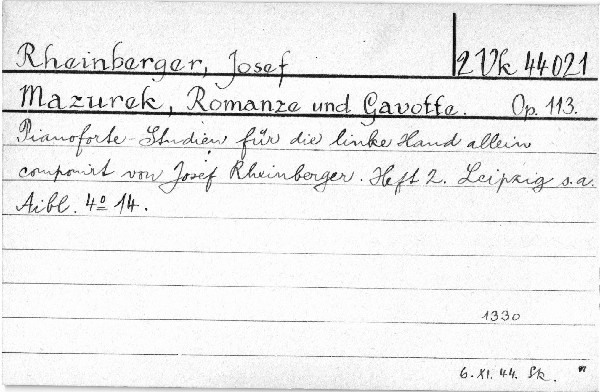 Rheinberger, Josef 2 Vk 44021
Mazurek, Romanze und Gavotte. Op. 113.
Pianoforte-Studien für die linke Hand allein
componirt von Josef Rheinberger. Heft 2. Leipzig s.a.
Aibl. 4º 14.
1330
6. XI. 44. Sk.